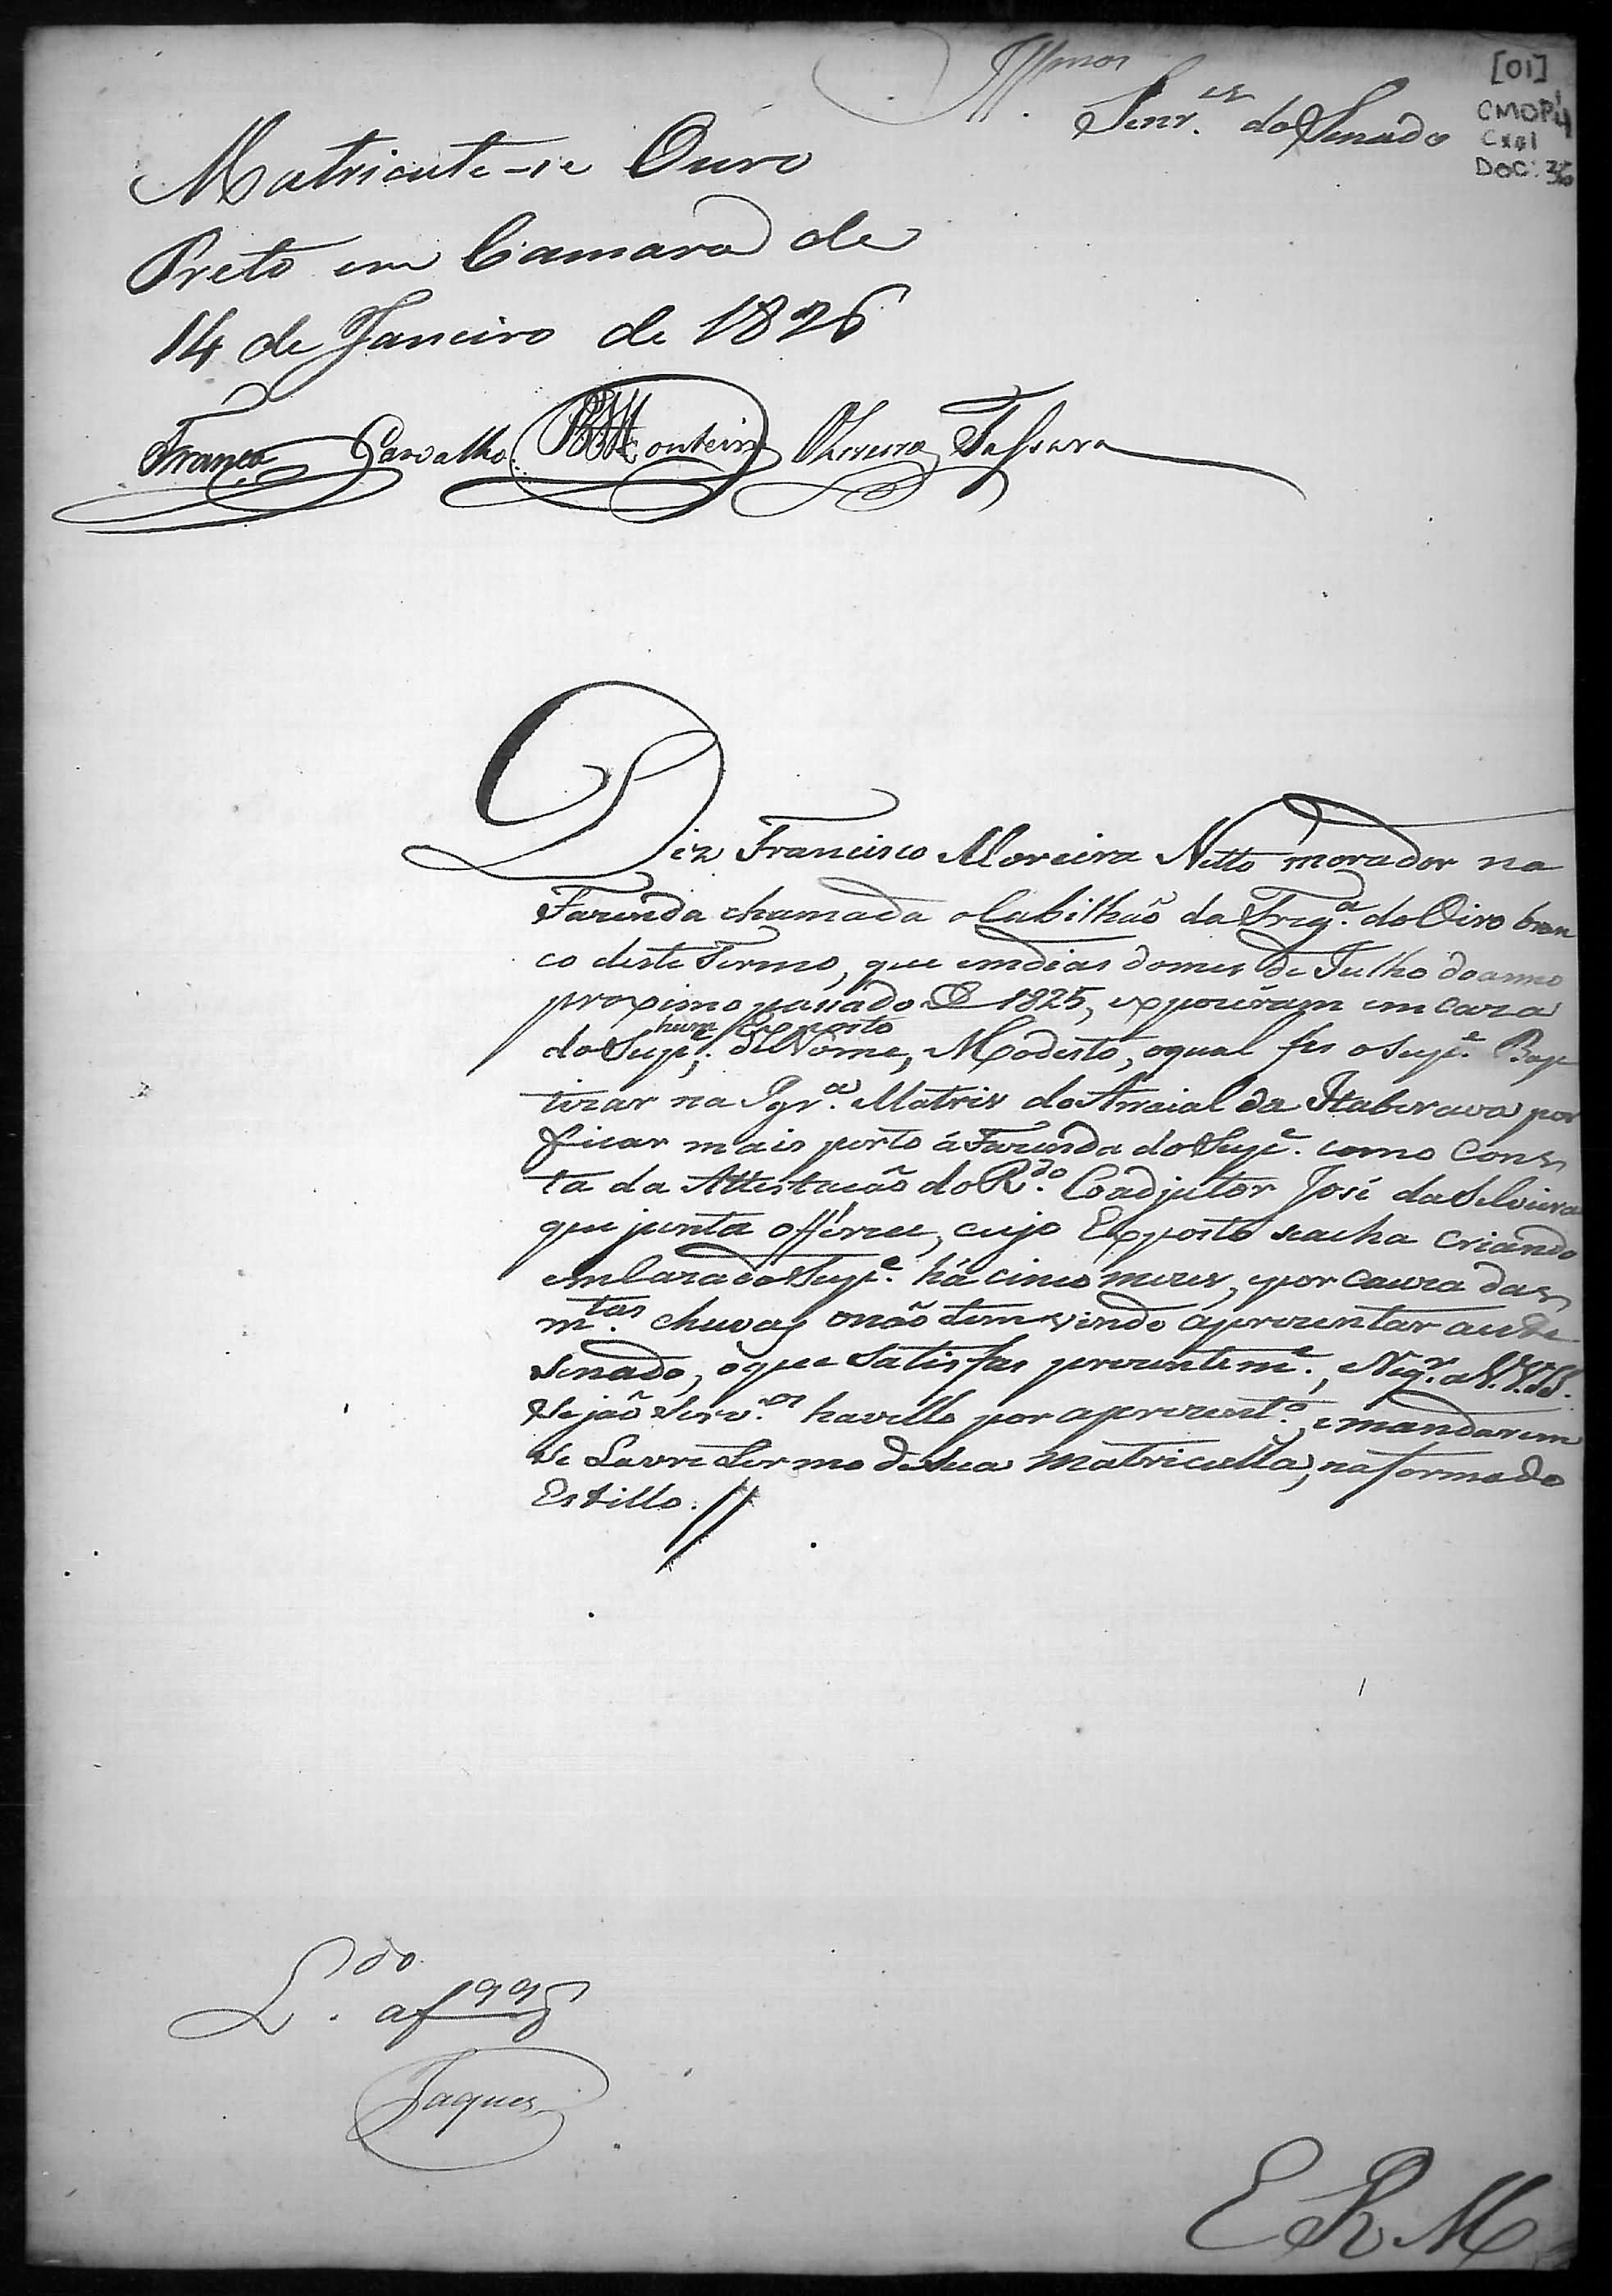 Illmos
Senr.es do Senado
[01]
CMOP
Cx01
DOC: 36
Matricule-se Ouro
Preto em Camara de
14 de Janeiro de 1826
França Carvalho Monteiro Oliveira
Diz Francisco Moreira Netto morador na
Fazenda chamada o Cabilhaõ da Freg.a do Oiro bran
co deste Termo, que em dias do mes de Julho do anno
proximo passado de 1825, expozéram em caza
hum Exposto
do Supe. de Nome, Modesto, o qual fes o Supe. Bap
tizar na Igr.a Matris do Arraial da Itaberava por
ficar mais perto á Fazenda do Supe. como Cons
ta da Attestacaõ do R.do Coadjutor José da Silveira
que junta offérece, cujo Exposto seacha criando
em Caza do Supe. há cinco mezes, e por cauza das
m.tas chuvas o naõ tem vindo aprezentar a este
Senado, o que satisfas prezentem.e, Neg.r a V.V.S.S.
Sejaõ Serv.os havello por aprezent.o, e mandarem
se Lavre termo de sua Matriculla, na forma do
Estillo. //
L.do a f 99
Jaques
E R M